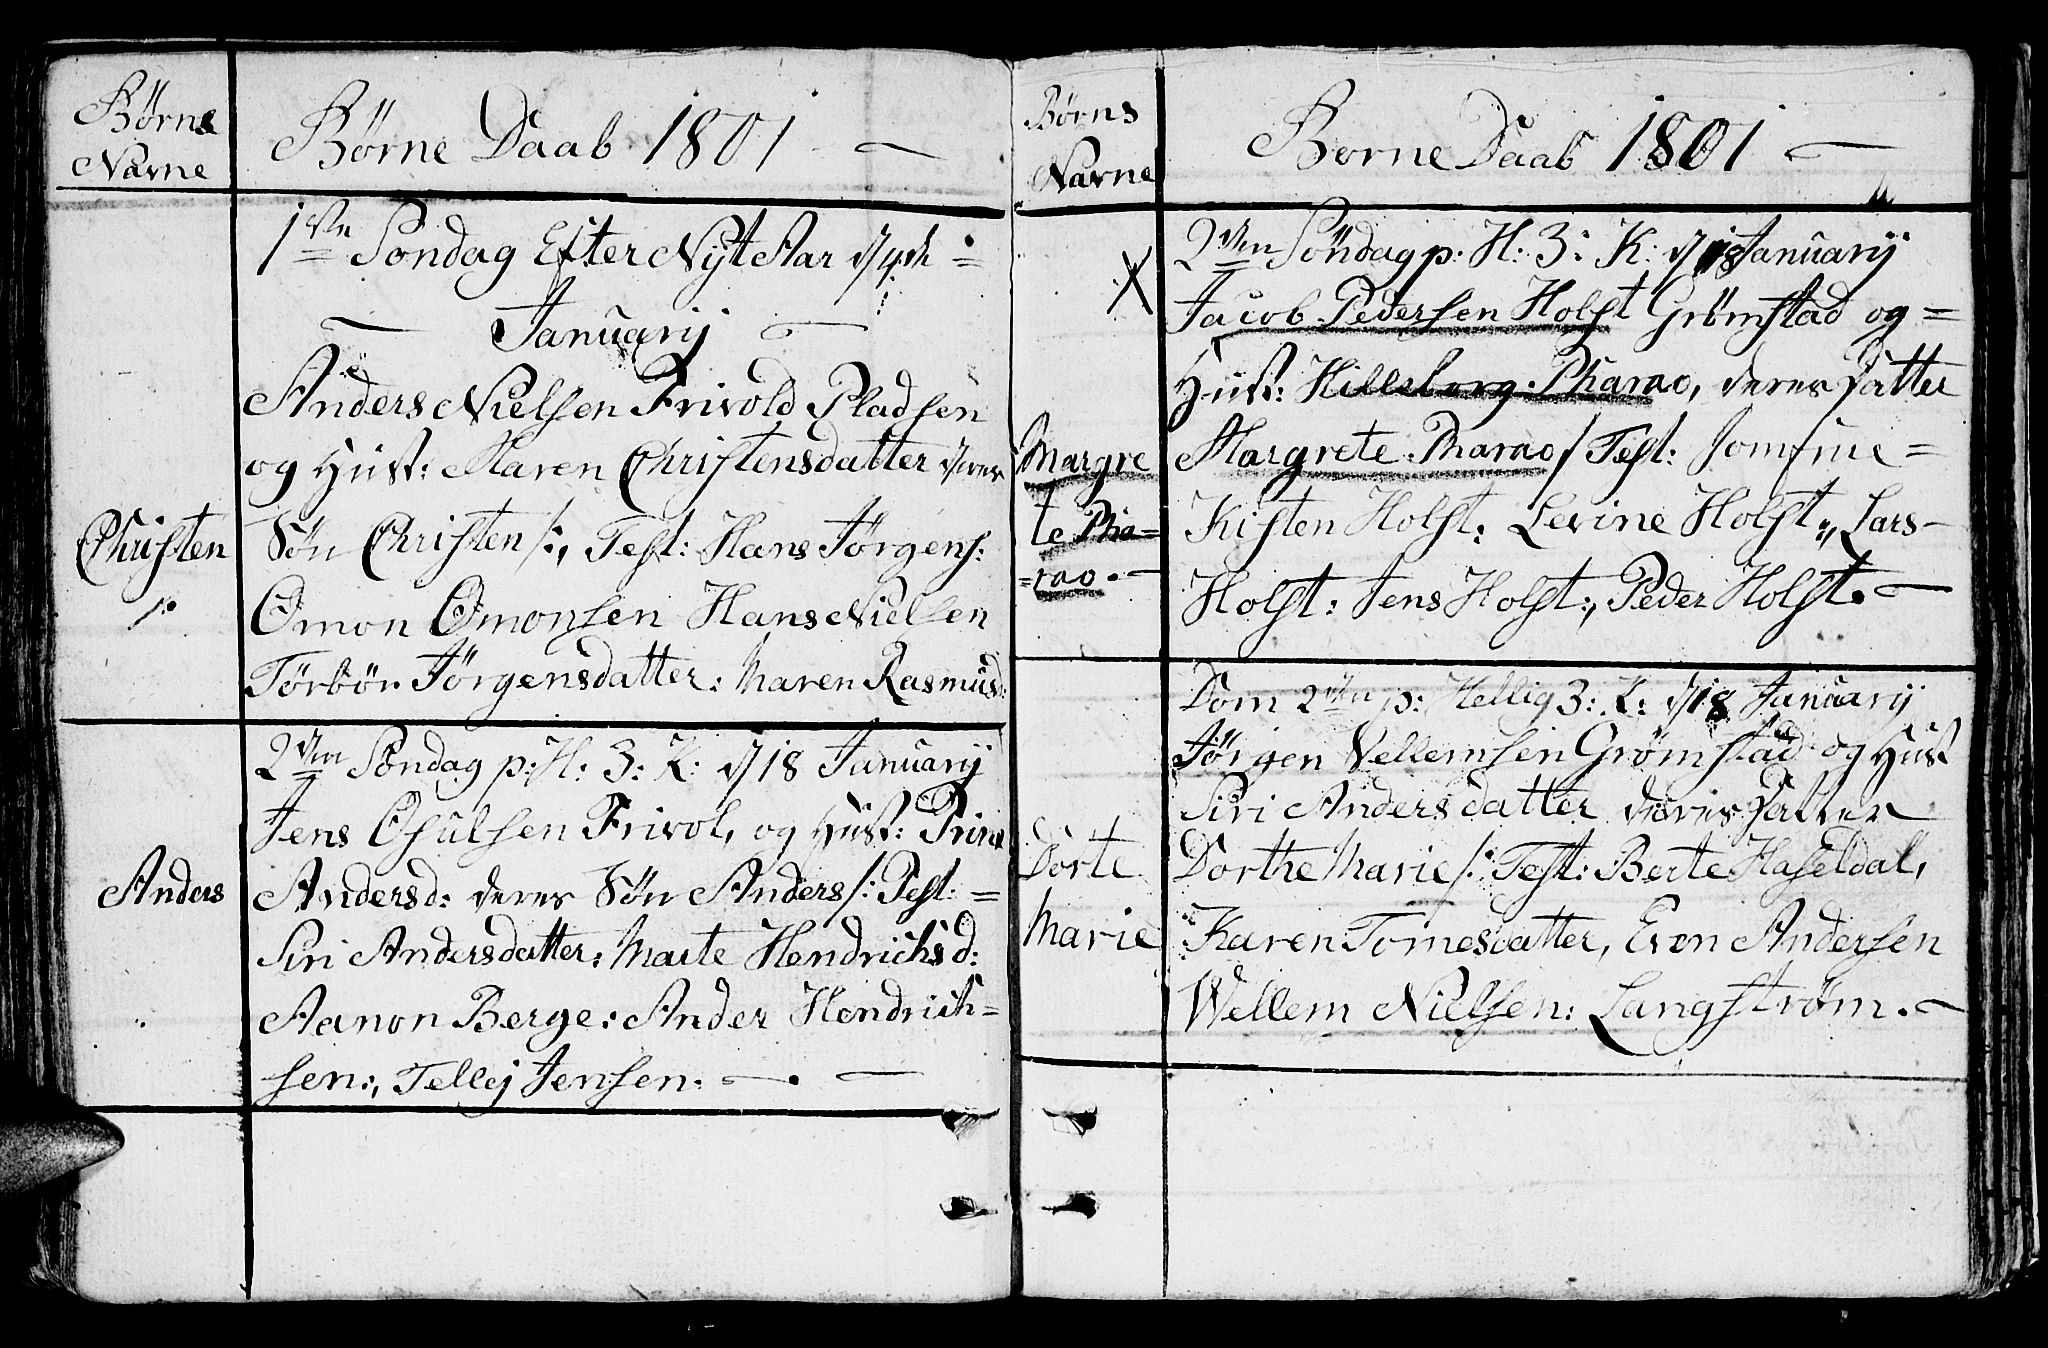 Børne
Navne
Børne Daab 1801 —
1ste Søndag Efter Nyt Aar d 4de =
— Januarij —
Anders Nielsen Frivold Pladsen
og Hust: Maren Christensdatter deres
Christen
Søn Christen /:, Test: Hans Jørgens:
Omon Omonsen Hans Nielsen
Tørbør Jørgensdatter: Maren Rasmusd:
2den Søndag p: H: 3: K: d 18 Januarij
Jens Osulsen Frivol, og Hust:
Anders
Andersd: deres Søn Anders /: Test: =
Siri Andersdatter: Marte Hendrichsd:
Aanon Berge: Ander Hendrich=
sen:, Tellej Jensen. —. —
Børns
Navne
Børne Daab 1801 —
2den Søndag p: H: 3: K: d 18 Januarij
X
Jacob Pedersen Holst Grömstad og =
Hust: Hilleborg Pharao, deres Datter
Margre
te Pha=
=rao. —
Margrete Pharao / Test: Jomfrue =
Kisten Holst: Levine Holst:, Lars-
Holst: Jens Holst:, Peder Holst. —
Dom 2den p: Hellig 3: K: d 18 Januarij
Jørgen Vellemsen Grömstad og Hust
Siri Andersdatter deres Datter
Dorte
Marie
Dorthe Marie /: Test: Berte Haseldal,
Karen Tomesdatter, Even Andersen
Wellem Nielsen: Langström. —